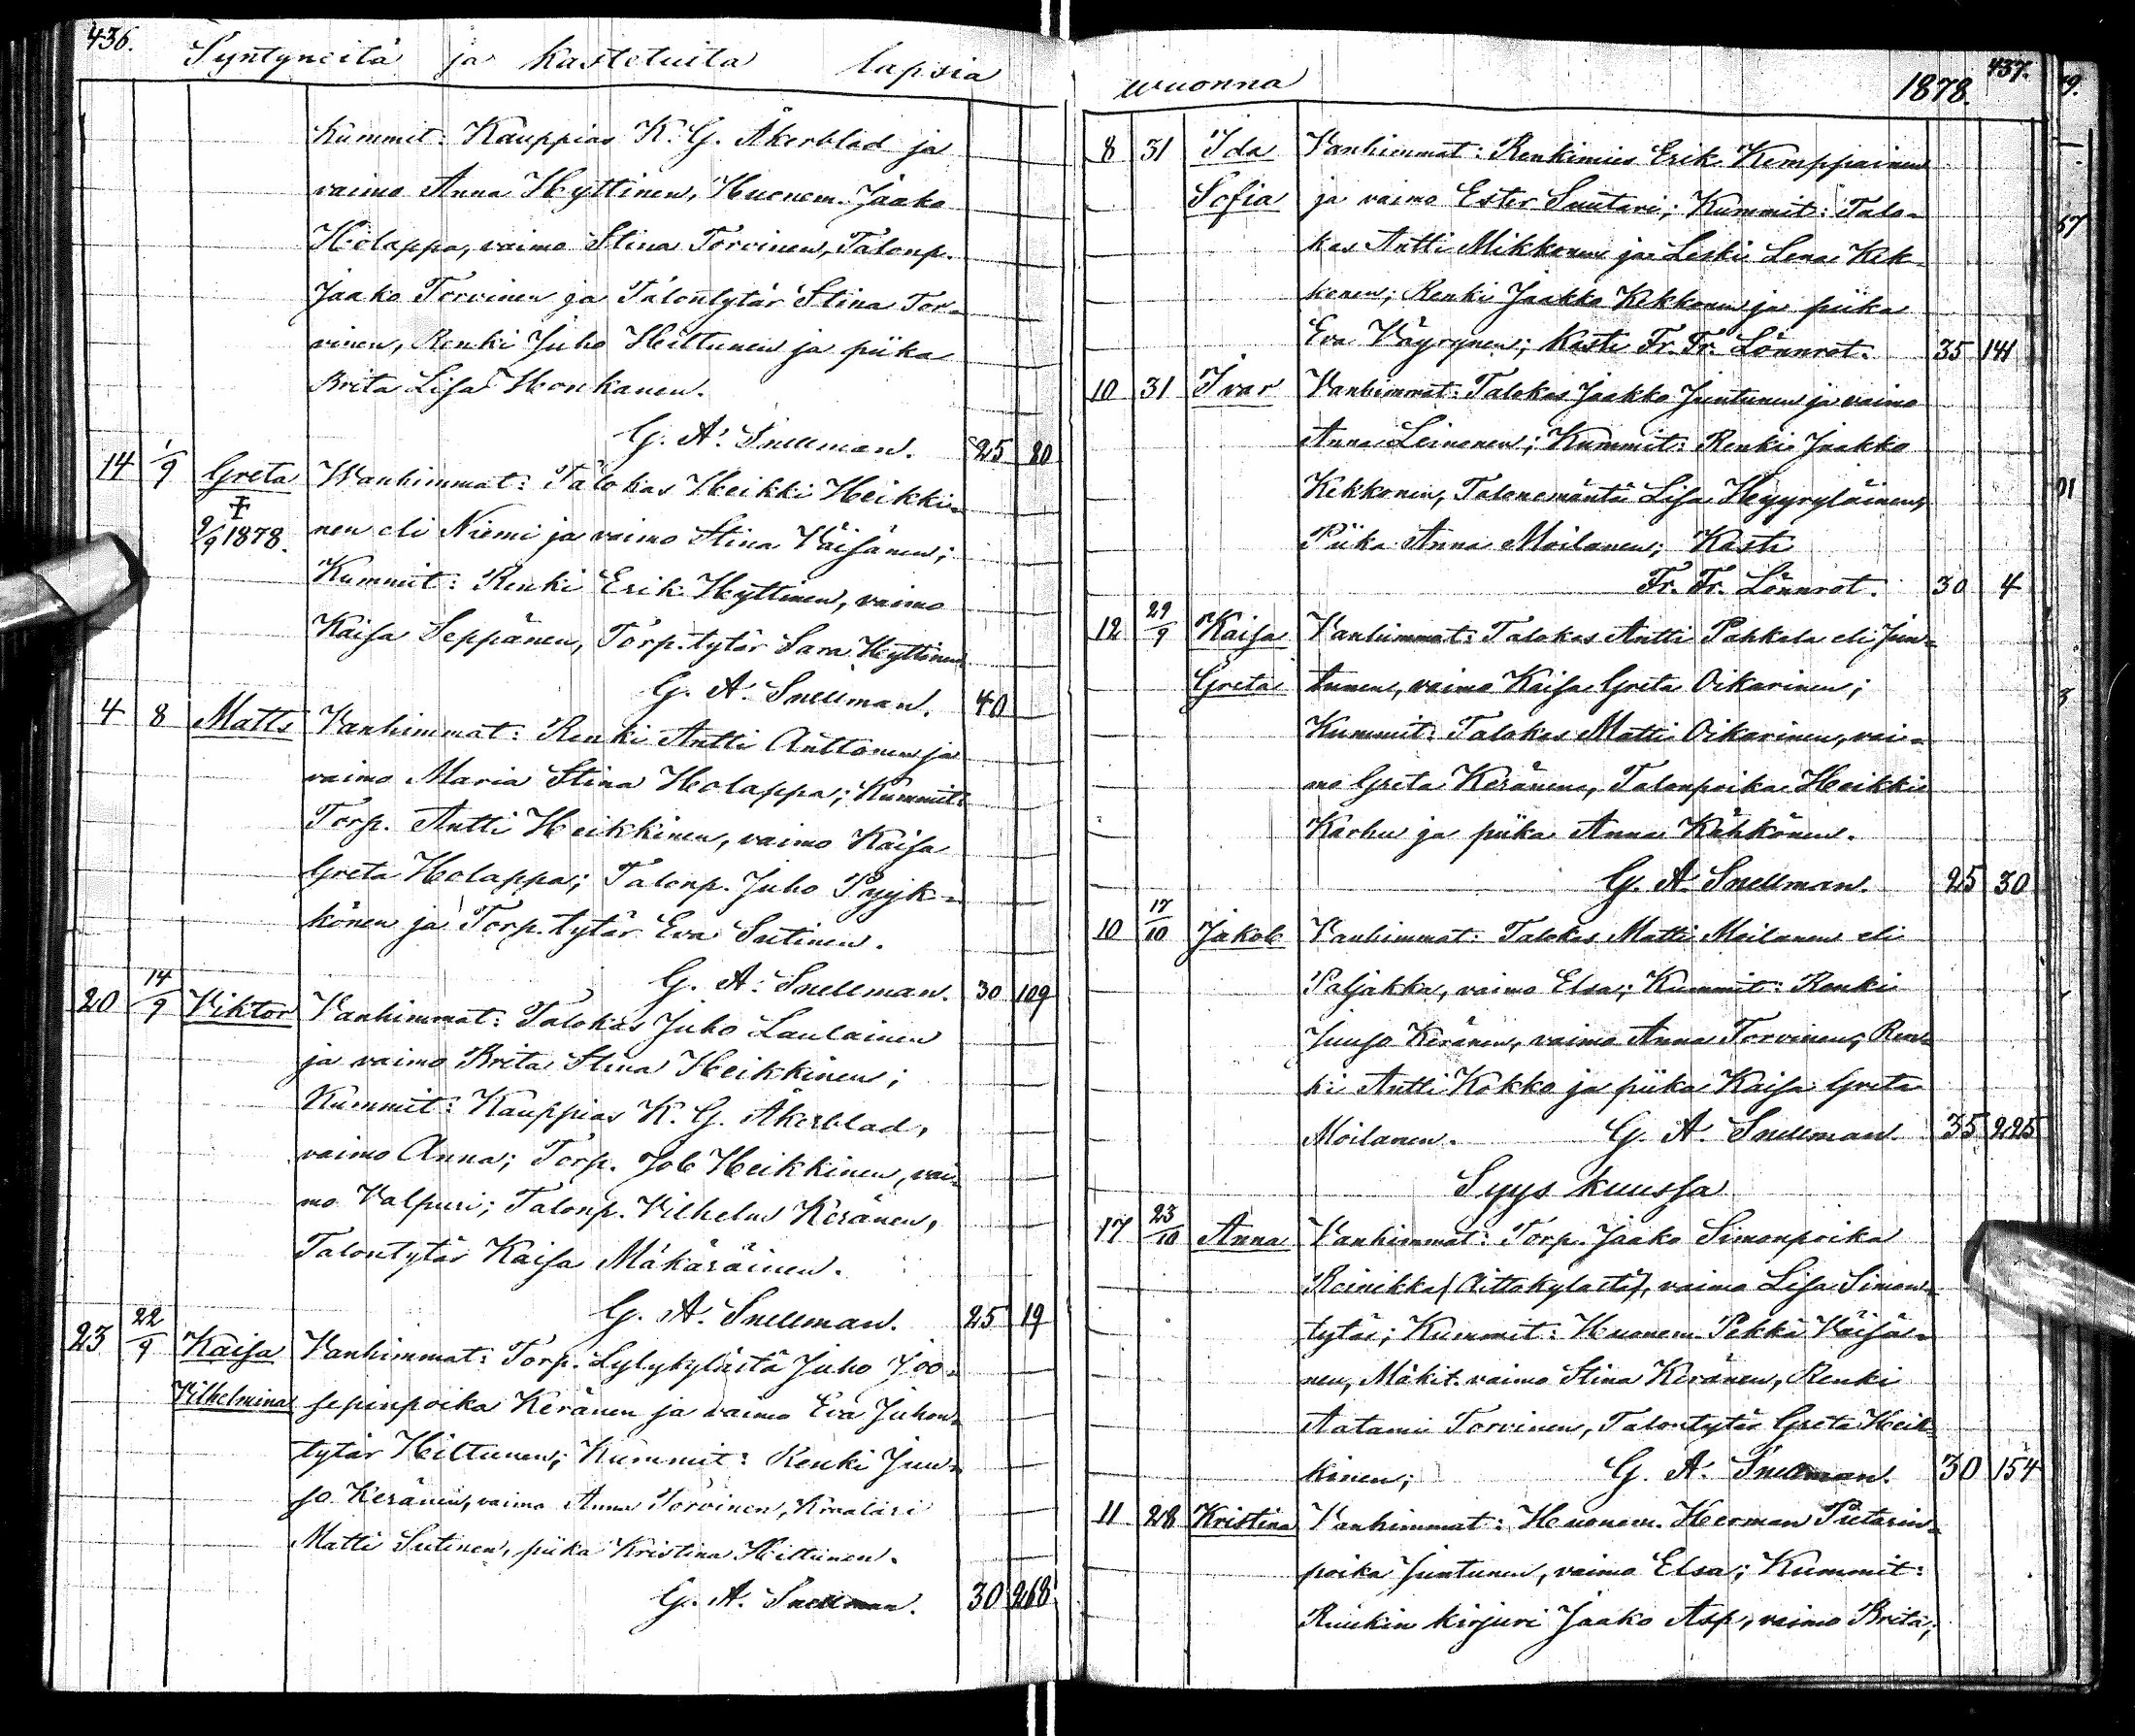 436.
Syntyneitä ja kastetuita lapsia
Kummit: Kauppias K. G. Åkerblad ja
vaimo Anna Hyttinen, Huonem. Jaako
Holappa, vaimo Stina Torvinen, Talonp.
Jaako Torvinen ja Talontytär Stina Tor-
vinen, Renki Juho Hiltunen ja piika
Brita Lisa Honkanen.
G. A. Snellman. 25 80
14 1/9 Greta Wanhimmat: Talokas Heikki Heikki-
‡ 2/9 1878. nen eli Niemi ja vaimo Stina Väisänen;
Kummit: Renki Erik Hyttinen, vaimo
Kaisa Seppänen, Torp. tytär Sara Hyttinen
G. A. Snellman. 40
4 8 Matts Vanhimmat: Renki Antti Anttonen ja
vaimo Maria Stina Holappa; Kummit:
Torp. Antti Heikkinen, vaimo Kaisa
Greta Holappa; Talonp. Juho Pyyk-
könen ja Torp. tytär Eva Sutinen.
G. A. Snellman. 30 109
20 14/9 Viktor Vanhimmat: Talokas Juho Laulainen
ja vaimo Brita Stina Heikkinen;
Kummit: Kauppias K. G. Åkerblad,
vaimo Anna; Torp. Job Heikkinen, vai-
mo Valpuri; Talonp. Vilhelm Keränen,
Talontytär Kaisa Mäkäräinen.
G. A. Snellman. 25 19
23 22/9 Kaisa Vanhimmat: Torp. Lylykylästä Juho Joo-
Vilhelmina sepinpoika Keränen ja vaimo Eva Juhon-
tytär Hiltunen; Kummit: Renki Juu-
so Keränen, vaimo Anna Torvinen,
Matti Sutinen, piika Kristina Hiltunen.
G. A. Snellman. 30 268
437.
wuonna 1878.
8 31 Ida Vanhimmat: Renkimies Erik Kemppainen
Sofia ja vaimo Ester Suutari; Kummit: Talo-
kas Antti Mikkonen ja Leski Lena Kek-
konen; Renki Jaakko Kekkonen ja piika
Eva Väyrynen; Kasti Fr. Fr. Lönnrot. 35 141
10 31 Ivar Vanhimmat: Talokas Jaakko Juntunen ja vaimo
Anna Leinonen; Kummit: Renki Jaakko
Kekkonen, Talonemäntä Lisa Heyyryläinen,
Piika Anna Moilanen; Kasti
Fr. Fr. Lönnrot. 30 4
12 29/9 Kaisa Vanhimmat: Talokas Antti Pahkala eli Jun-
Greta tunen, vaimo Kaisa Greta Oikarinen;
Kummit: Talokas Matti Oikarinen, vai-
mo Greta Keränen, Talonpoika Heikki
Karhu ja piika Anna Kähkönen.
G. A. Snellman. 25 30
10 17/10 Jakob Vanhimmat: Talokas Matti Moilanen eli
Paljakka, vaimo Elsa; Kummit: Renki
Juuso Keränen, vaimo Anna Torvinen, Ren-
ki Antti Kokko ja piika Kaisa Greta
Moilanen. G. A. Snellman. 35 225
Syys kuussa
17 23/10 Anna Vanhimmat: Torp. Jaako Simonpoika
Reinikka (Aittokylästä), vaimo Lisa Simon-
tytär; Kummit: Huonem. Pekka Väisä-
nen, Mäkit. vaimo Stina Keränen, Renki
Aatami Torvinen, Talontytär Greta Heik-
kinen; G. A. Snellman. 30 154
11 28 Kristina Vanhimmat: Huonem. Herman Pietarin-
poika Juntunen, vaimo Elsa; Kummit:
Ruukin kirjuri Jaako Asp, vaimo Brita;